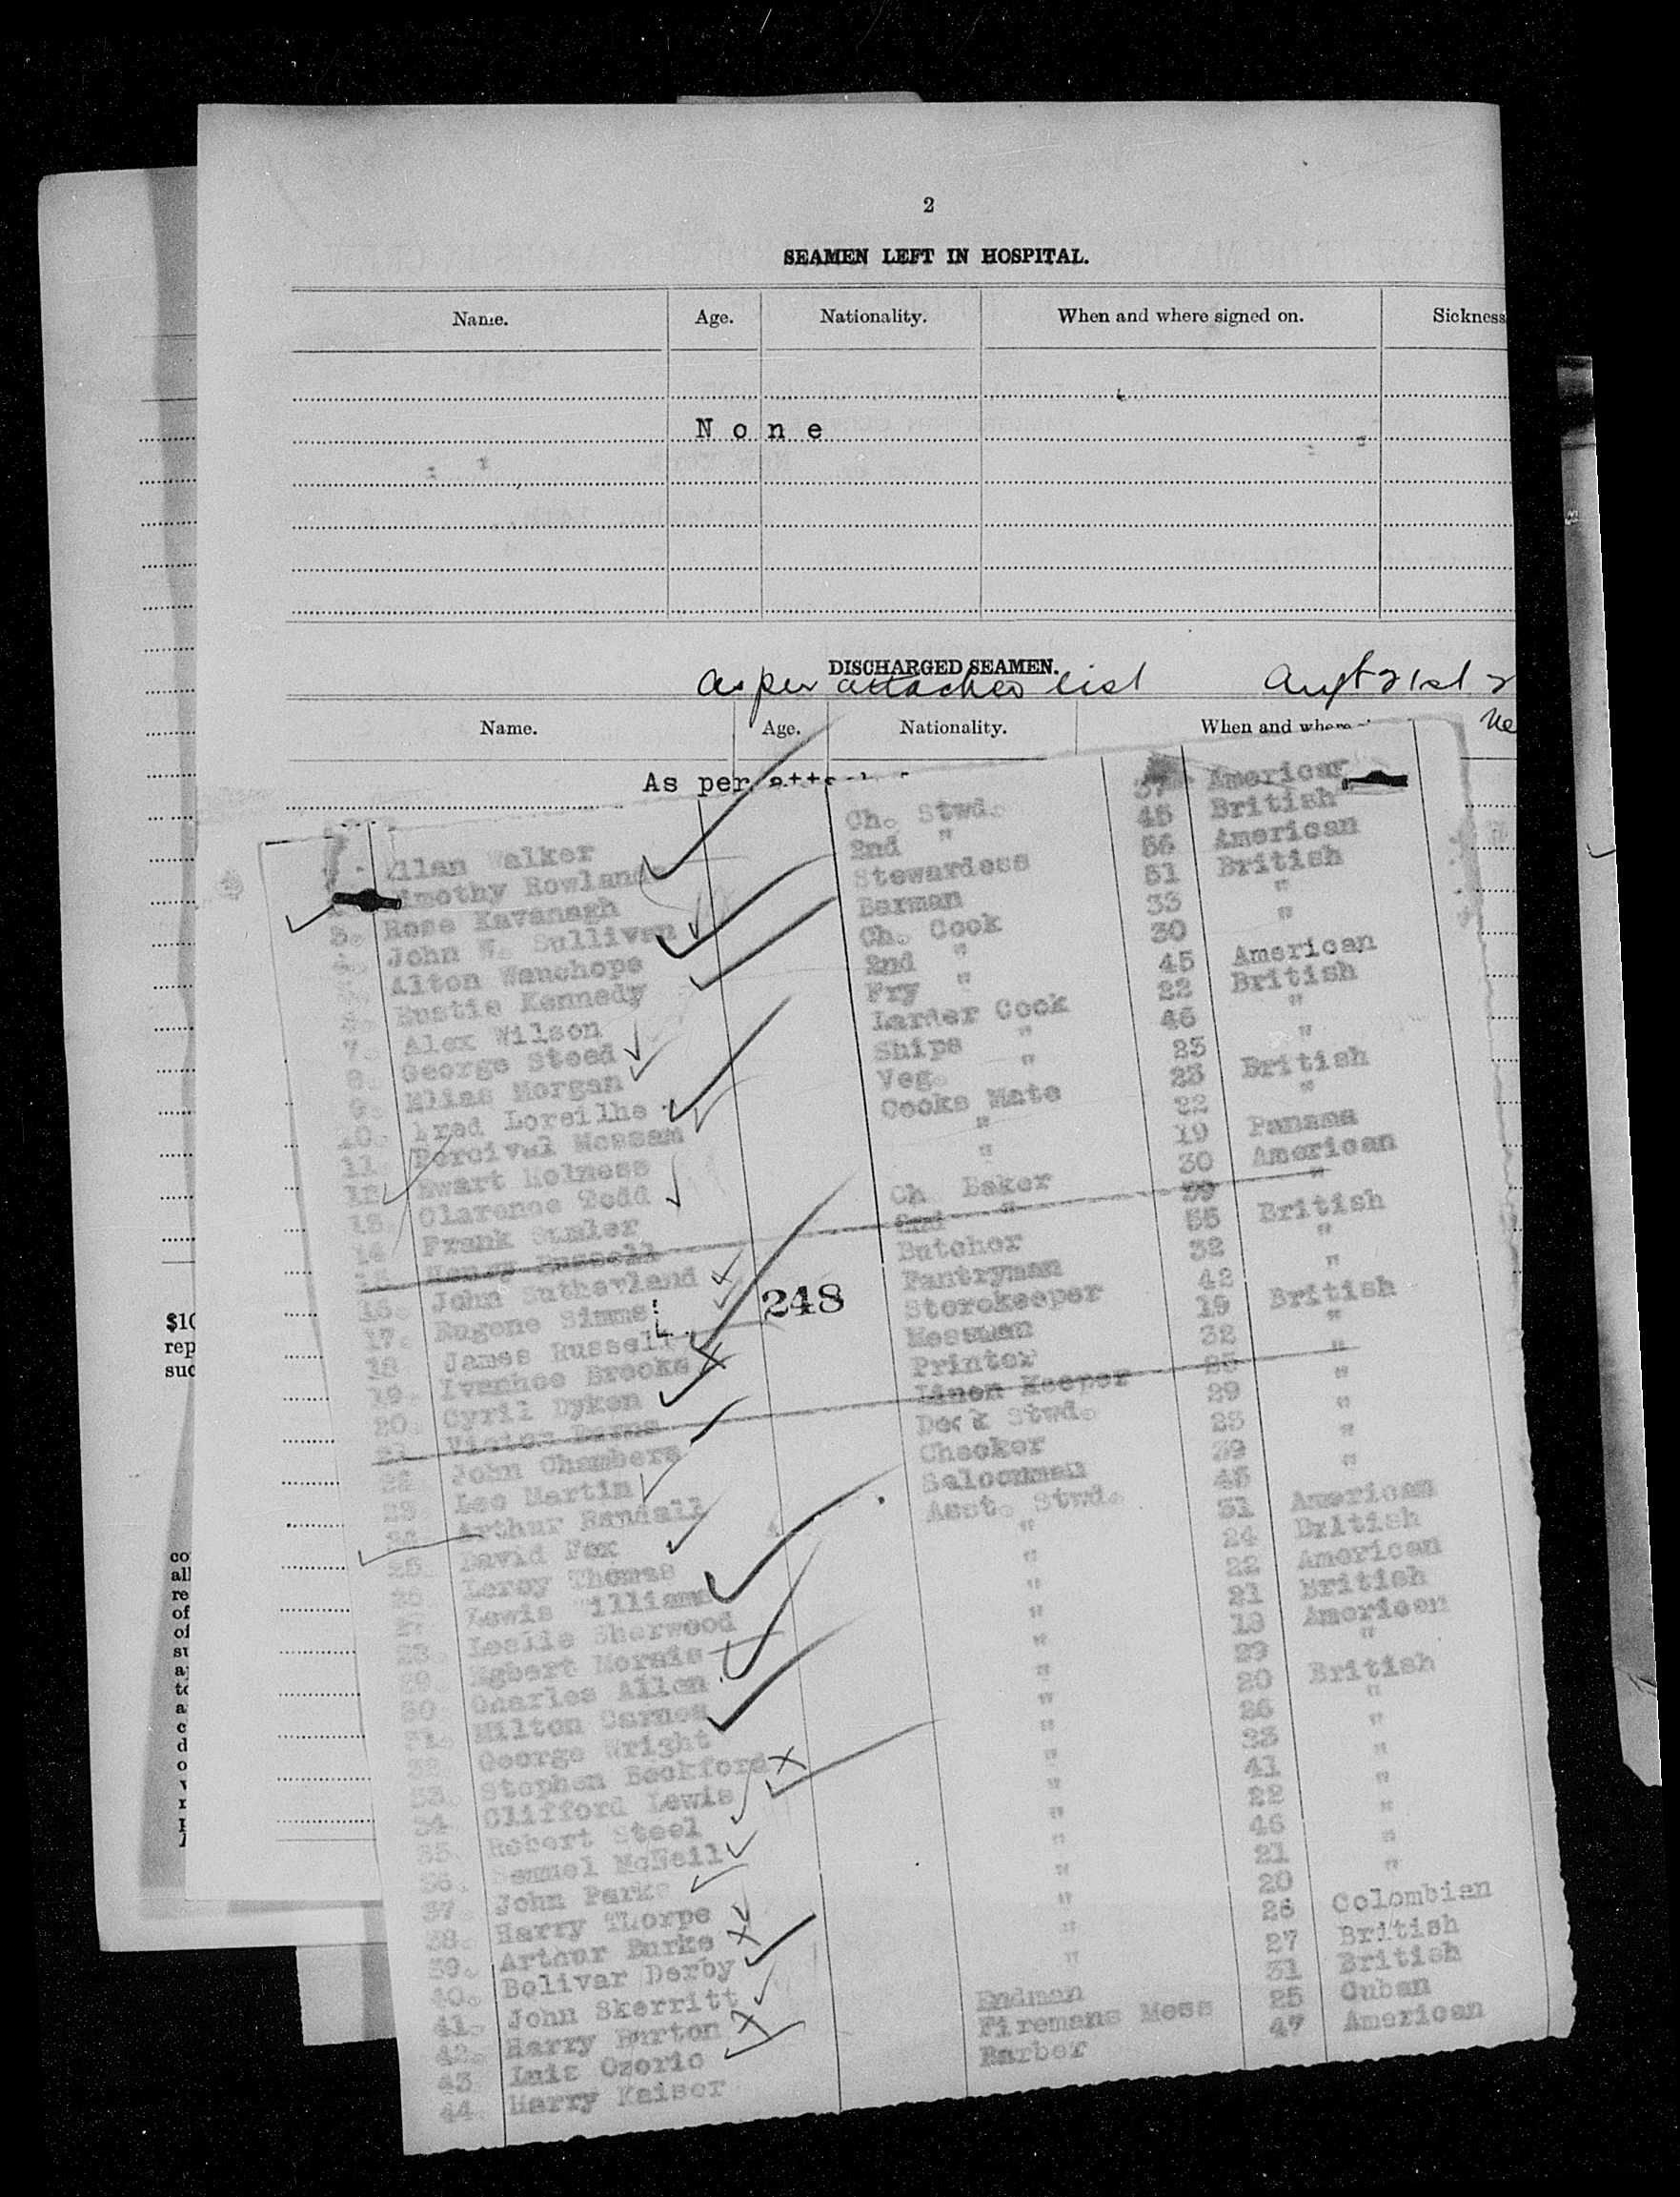 2
SEAMEN LEFT IN HOSPITAL.
Name. Age. Nationality. When and where signed on. Sickness
None
DISCHARGED SEAMEN.
As per attached list Augt 21st 2
Name. Age. Nationality. When and where
As per
Allan Walker Ch. Stwd. 37 American
Timothy Rowland 2nd " 45 British
3. Rose Kavanagh Stewardess 56 American
4. John W. Sullivan Barman 51 British
Alton Wanchope Ch. Cook 33 "
Eustie Kennedy 2nd " 30 "
7. Alex Wilson Fry " 45 American
8. George Steed Larder Cook 22 British
9. Elias Morgan Ships " 46 "
10. Fred Loreilhe Veg. " 23 "
11 Percival Messam Cooks Mate 23 British
12. Ewart Holness " 22 "
13. Clarence Todd " 19 Panama
14 Frank Sumler Ch Baker 30 American
15 Henry Russell 2nd " 39 "
16. John Sutherland Butcher 55 British
17. Eugene Simms Pantryman 32 "
18 James Russell Storekeeper 42 "
19. Ivanhoe Brooks Messman 19 British
20. Cyril Dyken Printer 32 "
21 Victor Linen Keeper 25 "
22 John Chambers Deck Stwd. 29 "
23. Leo Martin Checker 23 "
24. Arthur Randall Saloonman 39 "
25. David Fox Asst. Stwd. 45 "
26. Leroy Thomas " 31 American
27 Lewis Williams " 24 British
28. Leslie Sherwood " 22 American
29 Egbert Morais " 21 British
30 Charles Allen " 18 American
31. Milton Carnes " 29 "
32. George Wright " 20 British
33. Stephen Beckford " 26 "
34. Clifford Lewis " 33 "
35. Robert Steel " 41 "
36. Samuel McNeil " 22 "
37 John Parks " 46 "
38. Harry Thorpe " 21 "
39. Arthur Burke " 20 "
40. Bolivar Derby " 26 Colombian
41. John Skerritt " 27 British
42. Harry Burton Endman 31 British
43. Luis Ozorio Firemans Mess 25 Cuban
44. Harry Kaiser Barber 47 American
248
$10
rep
suc